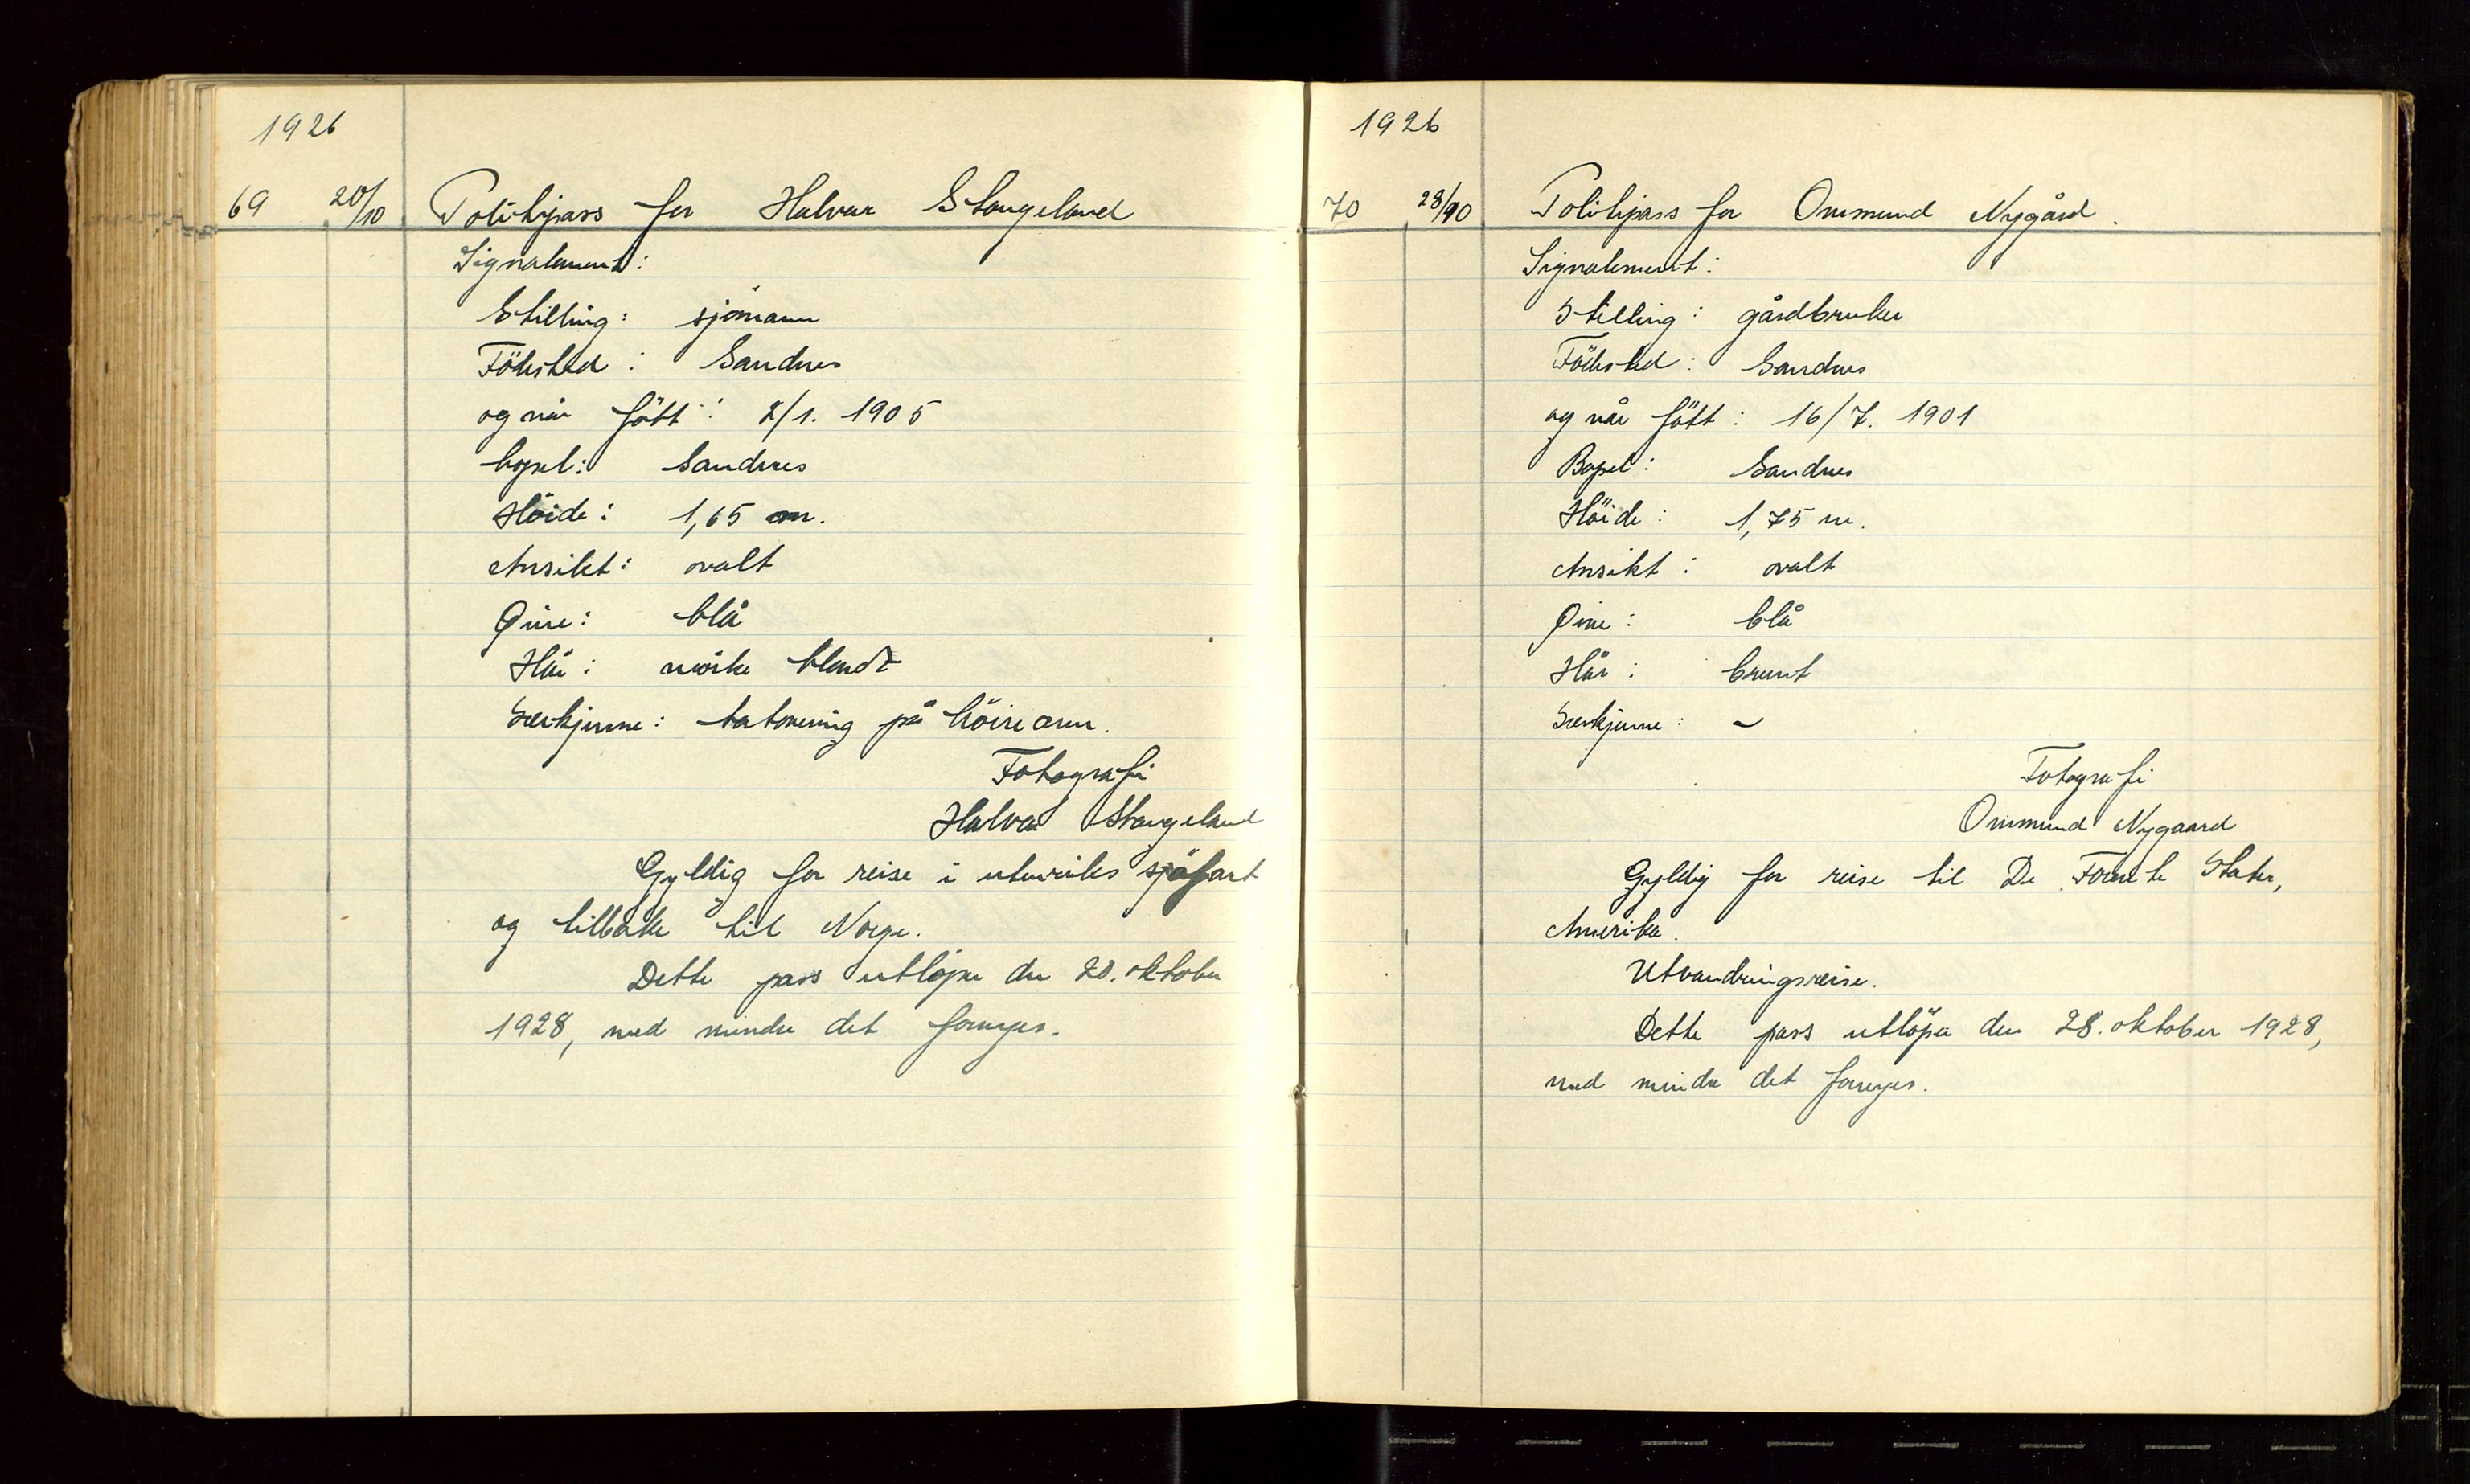 1926
69 20/10 Politipass for Halvar Stangeland
Signalement:
Stilling: sjömann
Födested: Sandnes
og når fött: 2/1. 1905
bopel: Sandnes
Höide: 1,65 m.
Ansikt: ovalt
Øine: blå
Hår: mörke blondt
Særkjenne: tatovering på höire arm.
Fotografi
Halvar Stangeland
Gyldig for reise i utenriks sjöfart
og tilbake til Norge.
Dette pass utlöper den 20. oktober
1928, med mindre det fornyes.
1926
70 28/10 Politipass for Ommund Nygård.
Signalement:
Stilling: gårdbruker
Födested: Sandnes
og når fött: 16/7. 1901
Bopel: Sandnes
Höide: 1,75 m.
Ansikt: ovalt
Øine: blå
Hår: brunt
Særkjenne: -
Fotografi
Ommund Nygaard
Gyldig for reise til De Forente Stater,
Amerika.
Utvandringsreise.
Dette pass utlöper den 28. oktober 1928,
med mindre det fornyes.